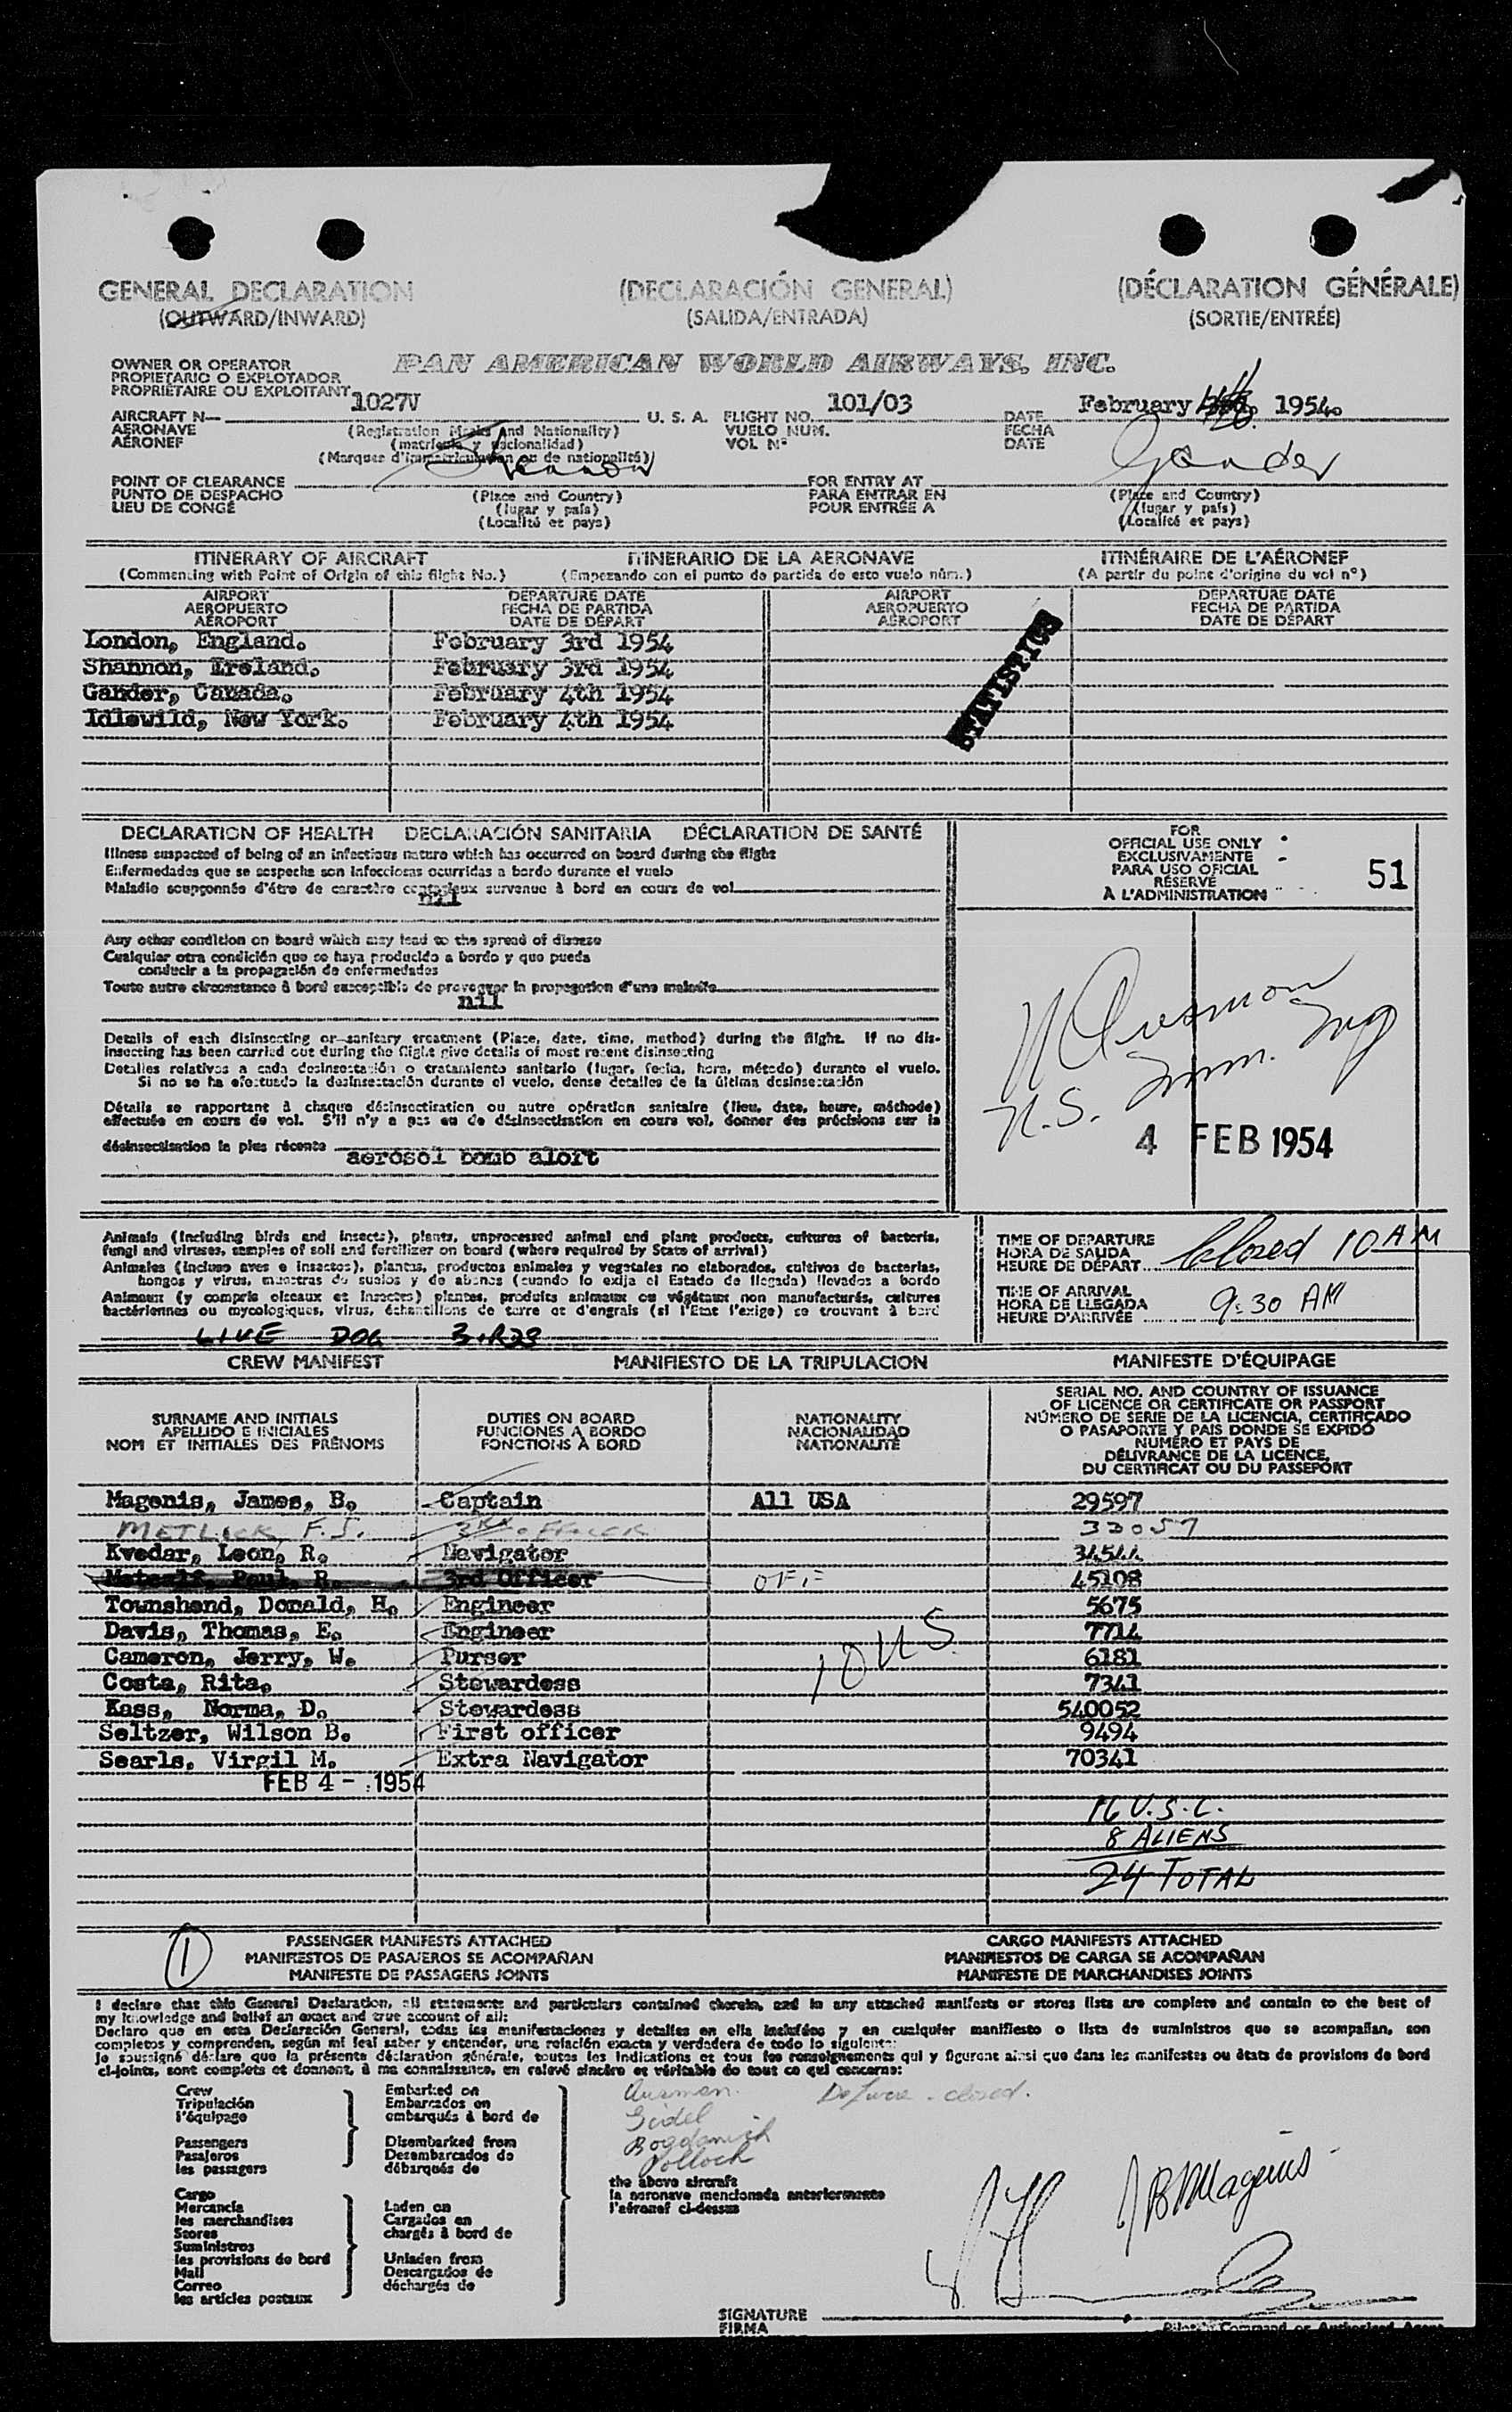 GENERAL DECLARATION (DECLARACIÓN GENERAL) (DÉCLARATION GÉNÉRALE)
(OUTWARD/INWARD) (SALIDA/ENTRADA) (SORTIE/ENTRÉE)
OWNER OR OPERATOR
PROPIETARIO O EXPLOTADOR
PROPRIÉTAIRE OU EXPLOITANT
PAN AMERICAN WORLD AIRWAYS, INC.
AIRCRAFT N— 1027V U. S. A. FLIGHT NO. 101/03 DATE February 1954.
AERONAVE (Registration Marks and Nationality) VUELO NUM. FECHA
AÉRONEF (matricula y nacionalidad) VOL Nº DATE
(Marques d'immatriculation ou de nationalité)
POINT OF CLEARANCE Shannon FOR ENTRY AT Gander
PUNTO DE DESPACHO (Place and Country) PARA ENTRAR EN (Place and Country)
LIEU DE CONGÉ (lugar y país) POUR ENTRÉE A (lugar y país)
(Localité et pays) (Localité et pays)
ITINERARY OF AIRCRAFT ITINERARIO DE LA AERONAVE ITINÉRAIRE DE L'AÉRONEF
(Commencing with Point of Origin of this flight No.) (Empezando con el punto de partida de este vuelo núm.) (A partir du point d'origine du vol nº)
AIRPORT DEPARTURE DATE AIRPORT DEPARTURE DATE
AEROPUERTO FECHA DE PARTIDA AEROPUERTO FECHA DE PARTIDA
AÉROPORT DATE DE DÉPART AÉROPORT DATE DE DÉPART
London, England. February 3rd 1954
Shannon, Ireland. February 3rd 1954
Gander, Canada. February 4th 1954
Idlewild, New York. February 4th 1954
STATISTICS
DECLARATION OF HEALTH DECLARACIÓN SANITARIA DÉCLARATION DE SANTÉ
Illness suspected of being of an infectious nature which has occurred on board during the flight
Enfermedades que se sospecha son infecciosas ocurridas a bordo durante el vuelo
Maladie soupçonnée d'être de caractère contagieux survenue à bord en cours de vol
nil
Any other condition on board which may lead to the spread of disease
Cualquier otra condición que se haya producido a bordo y que pueda
conducir a la propagación de enfermedades
Toute autre circonstance à bord susceptible de provoquer la propagation d'une maladie
nil
Details of each disinsecting or sanitary treatment (Place, date, time, method) during the flight. If no dis-
insecting has been carried out during the flight give details of most recent disinsecting
Detalles relativos a cada desinsectación o tratamiento sanitario (lugar, fecha, hora, método) durante el vuelo.
Si no se ha efectuado la desinsectación durante el vuelo, dense detalles de la última desinsectación
Détails se rapportant à chaque désinsectisation ou autre opération sanitaire (lieu, date, heure, méthode)
effectuée en cours de vol. S'il n'y a pas eu de désinsectisation en cours vol, donner des précisions sur la
désinsectisation la plus récente
aerosol bomb aloft
FOR
OFFICIAL USE ONLY
EXCLUSIVAMENTE
PARA USO OFICIAL
RÉSERVÉ
À L'ADMINISTRATION
51
4 FEB 1954
Animals (including birds and insects), plants, unprocessed animal and plant products, cultures of bacteria,
fungi and viruses, samples of soil and fertilizer on board (where required by State of arrival)
Animales (incluso aves e insectos), plantas, productos animales y vegetales no elaborados, cultivos de bacterias,
hongos y virus, muestras de suelos y de abonos (cuando lo exija el Estado de llegada) llevados a bordo
Animaux (y compris oiseaux et insectes) plantes, produits animaux ou végétaux non manufacturés, cultures
bactériennes ou mycologiques, virus, échantillons de terre et d'engrais (si l'Etat l'exige) se trouvant à bord
LIVE DOG BIRDS
TIME OF DEPARTURE
HORA DE SALIDA
HEURE DE DÉPART Closed 10 AM
TIME OF ARRIVAL
HORA DE LLEGADA
HEURE D'ARRIVÉE 9:30 AM
CREW MANIFEST MANIFIESTO DE LA TRIPULACION MANIFESTE D'ÉQUIPAGE
SURNAME AND INITIALS
APELLIDO E INICIALES
NOM ET INITIALES DES PRÉNOMS
DUTIES ON BOARD
FUNCIONES A BORDO
FONCTIONS À BORD
NATIONALITY
NACIONALIDAD
NATIONALITÉ
SERIAL NO. AND COUNTRY OF ISSUANCE
OF LICENCE OR CERTIFICATE OR PASSPORT
NÚMERO DE SERIE DE LA LICENCIA, CERTIFICADO
O PASAPORTE Y PAIS DONDE SE EXPIDÓ
NUMÉRO ET PAYS DE
DÉLIVRANCE DE LA LICENCE,
DU CERTIFICAT OU DU PASSEPORT
Magenis, James, B. Captain All USA 29597
METLICK F.J. OFFICER 33057
Kvedar, Leon, R. Navigator 34544
Metcalf, Paul, R. 3rd Officer OFF 45108
Townshend, Donald, H. Engineer 5675
Davis, Thomas, E. Engineer 7714
Cameron, Jerry, W. Purser 6181
Costa, Rita, Stewardess 7341
Kass, Norma, D. Stewardess 540052
Seltzer, Wilson B. First officer 9494
Searls, Virgil M. Extra Navigator 70341
10 US
FEB 4 - 1954
16 U.S.C.
8 ALIENS
24 TOTAL
1
PASSENGER MANIFESTS ATTACHED CARGO MANIFESTS ATTACHED
MANIFIESTOS DE PASAJEROS SE ACOMPAÑAN MANIFIESTOS DE CARGA SE ACOMPAÑAN
MANIFESTE DE PASSAGERS JOINTS MANIFESTE DE MARCHANDISES JOINTS
I declare that this General Declaration, all statements and particulars contained therein, and in any attached manifests or stores lists are complete and contain to the best of
my knowledge and belief an exact and true account of all:
Declaro que en esta Declaración General, todas las manifestaciones y detalles en ella incluídos y en cualquier manifiesto o lista de suministros que se acompañan, son
completos y comprenden, según mi leal saber y entender, una relación exacta y verdadera de todo lo siguiente:
Je soussigné déclare que la présente déclaration générale, toutes les indications et tous les renseignements qui y figurent ainsi que dans les manifestes ou états de provisions de bord
ci-joints, sont complets et donnent, à ma connaissance, en relevé sincère et véritable de tout ce qui concerne:
Crew
Tripulación
l'équipage
Passengers
Pasajeros
les passagers
Cargo
Mercancía
les merchandises
Stores
Suministros
les provisions de bord
Mail
Correo
les articles postaux
Embarked on
Embarcados en
embarqués à bord de
Disembarked from
Desembarcados de
débarqués de
Laden on
Cargados en
chargés à bord de
Unladen from
Descargados de
déchargés de
closed.
Gidel
Bogdanich
Pollock
the above aircraft
la aeronave mencionada anteriormente
l'aéronef ci-dessus
JBMagenis
SIGNATURE
FIRMA
Pilot in Command or Authorized Agent